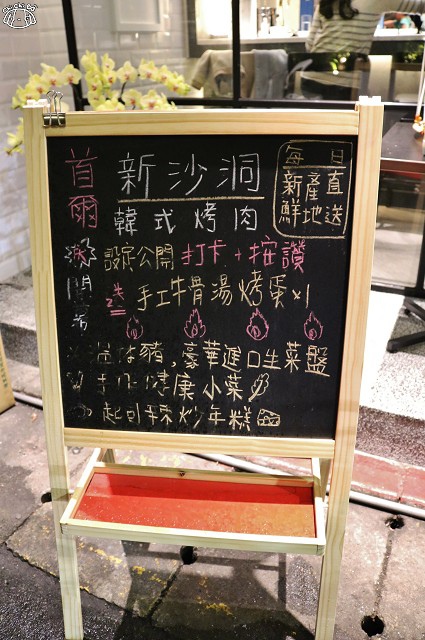 首爾
新沙洞
韓式烤肉
每日
新產直
鮮地送
設定公開 打卡+按讚
送 手工牛骨湯烤蛋x1
豬,豪華進口生菜盤
手作健康小菜
起司辣炒年糕